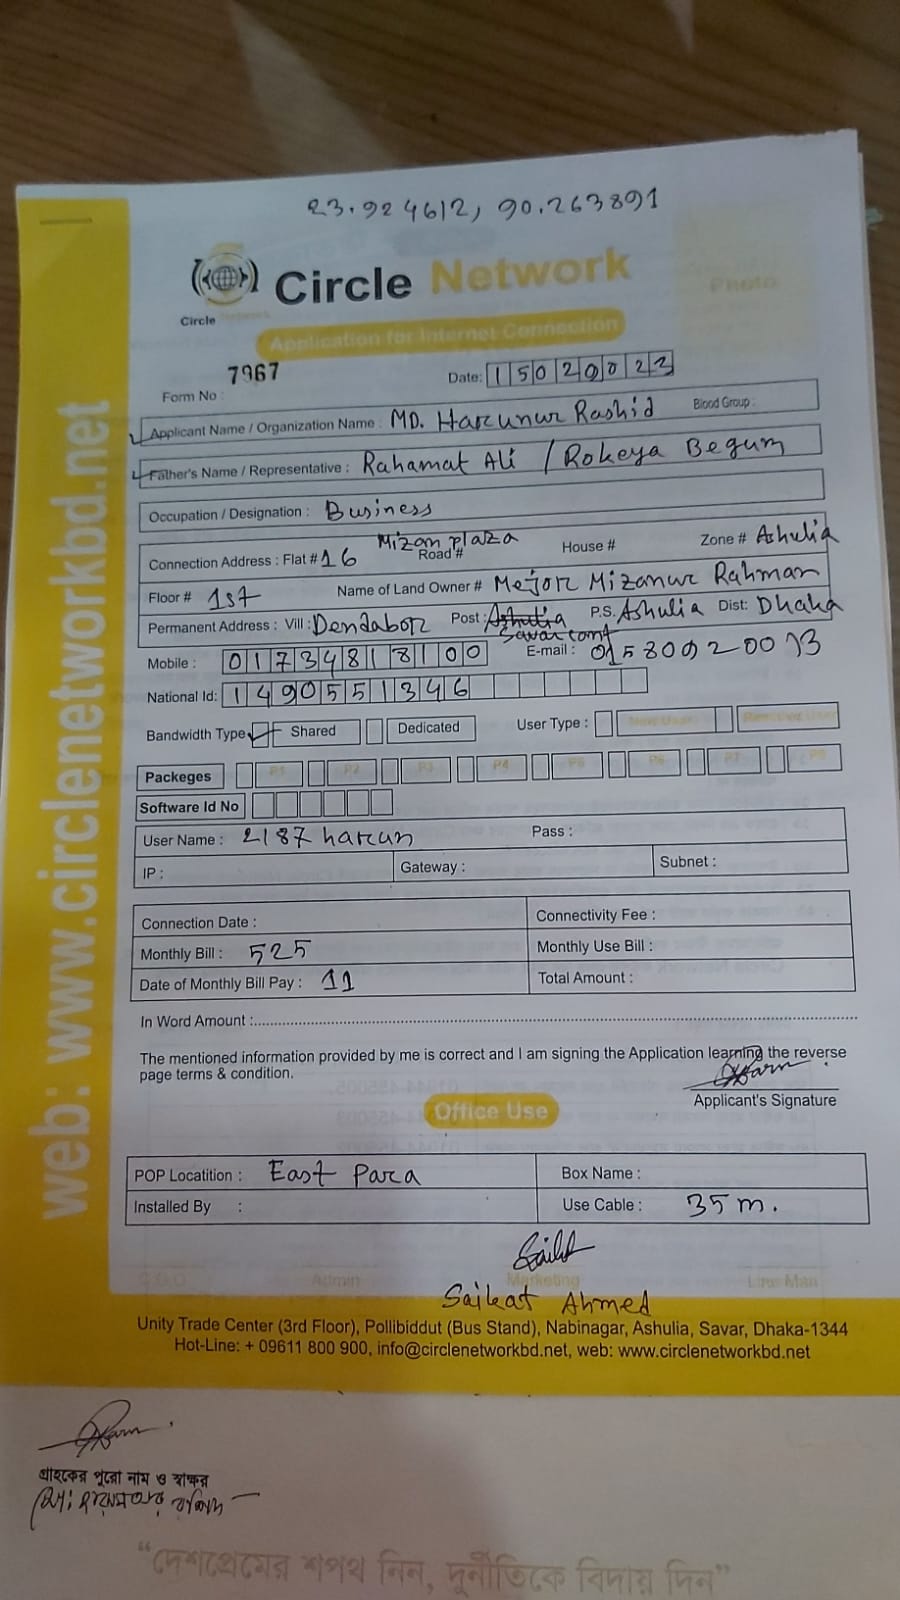 23.924612, 90.263891
Circle Network
Circle Network
Application for Internet Connection
Photo
Form No : 7967
Date: 15020023
Applicant Name / Organization Name : MD. Harunur Rashid Blood Group :
Father's Name / Representative : Rahamat Ali / Rokeya Begum
Occupation / Designation : Business
Mizan plaza
Connection Address : Flat # 16 Road # House # Zone # Ashulia
Floor # 1st Name of Land Owner # Mejor Mizanur Rahman
Permanent Address : Vill : Dendabor Post : Ashulia P.S. Ashulia Dist: Dhaka
Savar cant
Mobile : 01734818100 E-mail : 01580920013
National Id: 1490551346
Bandwidth Type Shared Dedicated User Type : New User
Packeges P1 P2 P3 P4 P5 P6 P7 P8
Software Id No
User Name : 2187 harun Pass :
IP : Gateway : Subnet :
Connection Date : Connectivity Fee :
Monthly Bill : 525 Monthly Use Bill :
Date of Monthly Bill Pay : 11 Total Amount :
In Word Amount :
The mentioned information provided by me is correct and I am signing the Application learning the reverse
page terms & condition.
Applicant's Signature
Office Use
POP Locatition : East Para Box Name :
Installed By : Use Cable : 35 m.
C.O.O Admin Marketing Line Man
Saikat Ahmed
Unity Trade Center (3rd Floor), Pollibiddut (Bus Stand), Nabinagar, Ashulia, Savar, Dhaka-1344
Hot-Line: + 09611 800 900, info@circlenetworkbd.net, web: www.circlenetworkbd.net
web: www.circlenetworkbd.net
গ্রাহকের পুরো নাম ও স্বাক্ষর
“দেশপ্রেমের শপথ নিন, দুর্নীতিকে বিদায় দিন”